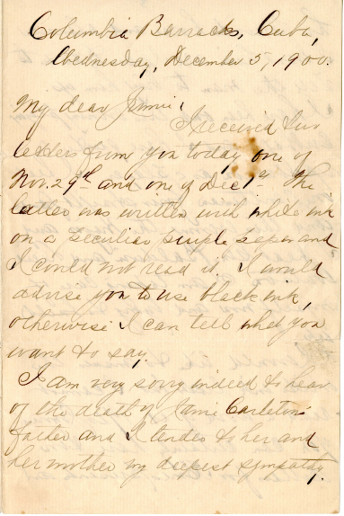 Columbia Barracks, Cuba,
Wednesday, December 5, 1900.
My dear Jennie:
I received two
letters from you today, one of
Nov. 29th and one of Dec 1st. The
latter was written with white ink
on a peculiar purple paper and
I could not read it. I would
advise you to use black ink,
otherwise I can tell what you
want to say.
I am very sorry indeed to hear
of the death of Jamie Carleton's
father and I tender to her and
her mother my deepest sympathy.